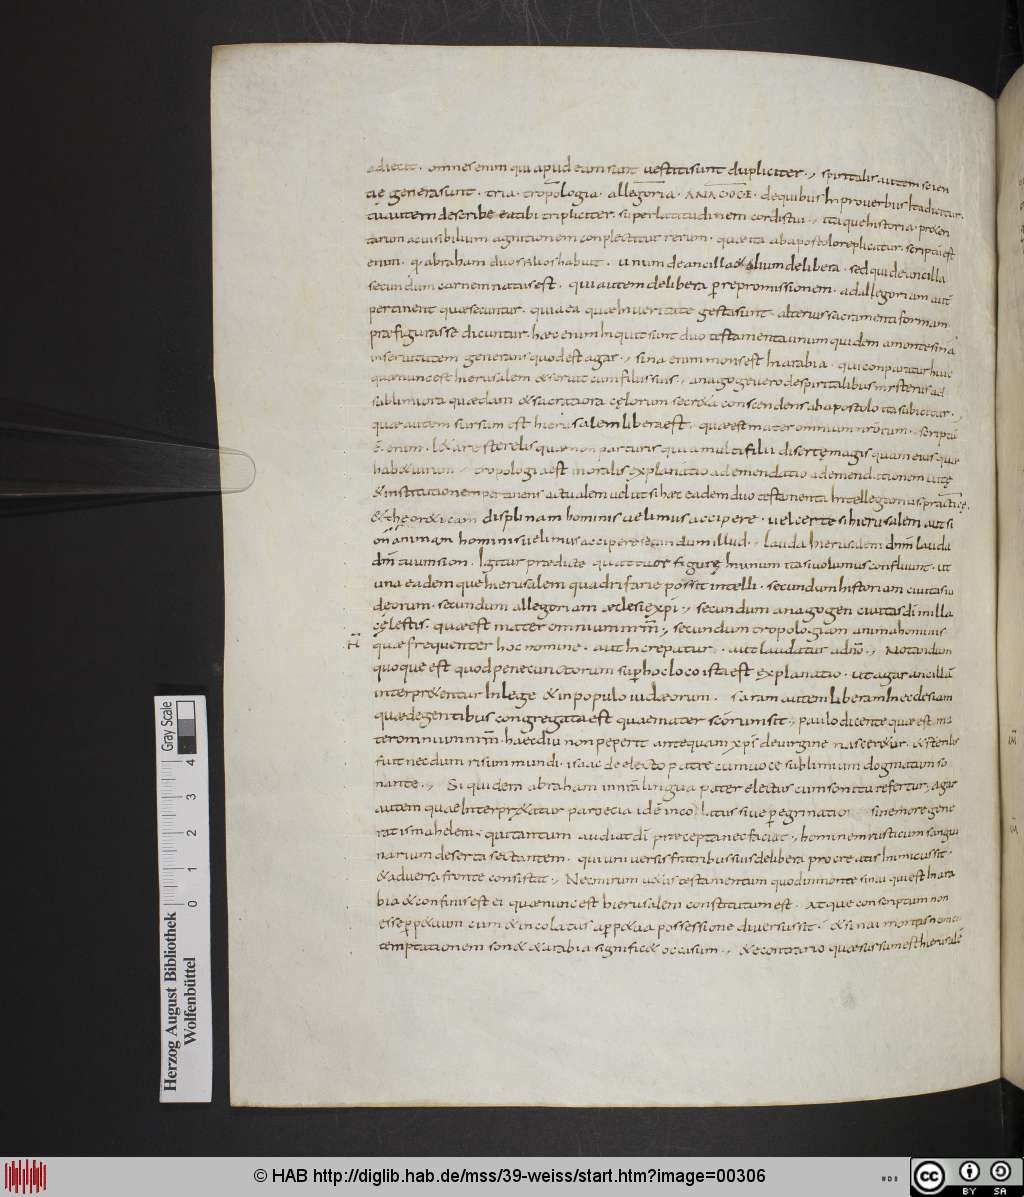 adiecit. omnes enim qui apud eam sunt vestiti sunt dupliciter., spiritalis autem scien
tię genera sunt. tria. tropologia. allegoria. dequibus In proverbiis Ita dicitur.
tu autem describe ea tibi tripliciter. super latitudinem cordis tui., Itaque historia. præteri
tarum ac visibilium agnitionem conplectitur rerum. quæ ita abapostolo replicatur. scriptū est
enim. q̄ abraham duos filios habuit. unum de ancilla & alium de libera. sed qui de ancilla
secundum carnem natus est. qui autem de libera p̄ repromissionem. ad allegoriam autē
pertinent quæ secuntur. quia ea quæ In veritate gesta sunt. alterius sacramenti formam
præfigurasse dicuntur. hæc enim Inquit sunt duo testamenta unum quidem a monte sina
in servitutem generans quod est agar., sina enim mons est In arabia. qui conparatur huic
quæ nunc est hierusalem & servit cum filiis suis., anagoge vero de spiritalibus misteriis ad
sublimiora quædam & sacratiora cęlorum secr&a conscendens ab apostolo ita subicitur.,
quæ autem sursum est hierusalem libera est. quæ est mater omnium nr̄orum. scriptū
ē. enim. l&are sterelis quæ non parturis quia multi filii disertę magis quam eius quæ
hab& virum., tropologia est moralis explanatio ad emendationem vitę
& institutionem pertinens actualem velut si hæc eadem duo testamenta Intellegamus practicę.
& theor&icam displinam hominis velimus accipere. vel certe si hierusalem aut si
on animam hominis velimus accipere secundum illud., lauda hierusalem dnm̄ lauda
dm̄ tuum sion. Igitur prædictę quattuor figurę In unum ita si volumus confluunt. ut
una eadem que hierusalem quadrifarie possit intelli. secundum historiam civitas iu
deorum. secundum allegoriam æclesia xp̄i., secundum anagogen civitas dī illa
cęlestis. quæ est mater omnium nr̄m., secundum tropologiam anima hominis
quæ frequenter hoc nomine. aut Increpatur. aut laudatur a dnō., Notandum
quoque est quod pene cunctorum sup̄ hoc loco ista est explanatio. ut agar ancillā
interpr&entur In lege & in populo iudæorum. saram autem liberam In ecclesiam
quæ de gentibus congregata est quæ mater sc̄orum sit., paulo dicente quæ est ma
ter omnium nr̄m. haec diu non peperit antequam xp̄s de virgine nascer&ur. & sterilis
fuit necdum risum mundi. isaac de electo patre cum voce sublimium dogmatum so
nante., Si quidem abraham in nr̄a lingua pater electus cum sonitu refertur. agar
autem quæ Interpr&atur paroecia idē incolatus sive p̄egrinatio sine more gene
rat ismahelem. qui tantum audiat dī præcepta nec faciat., hominem rusticum sangui
narium deserta sectantem. qui universis fratribus suis de libera procreatis Inimicus sit.
& adversa fronte consistat., Nec mirum v&us testamentum quod in monte sinai qui est In ara
bia & confinis est ei quæ nunc est hierusalem constitutum est. Atque conscriptum non
esse p̄p&uum cum & incolatus a p̄p&ua possessione diversus sit. & sinai montis nomen
temptationem son& & arabia signific& occasum., & e contrario quæ sursum est hierusalē
Gray Scale
4
3
2
1
0
Herzog August Bibliothek
Wolfenbüttel
© HAB http://diglib.hab.de/mss/39-weiss/start.htm?image=00306
cc BY SA